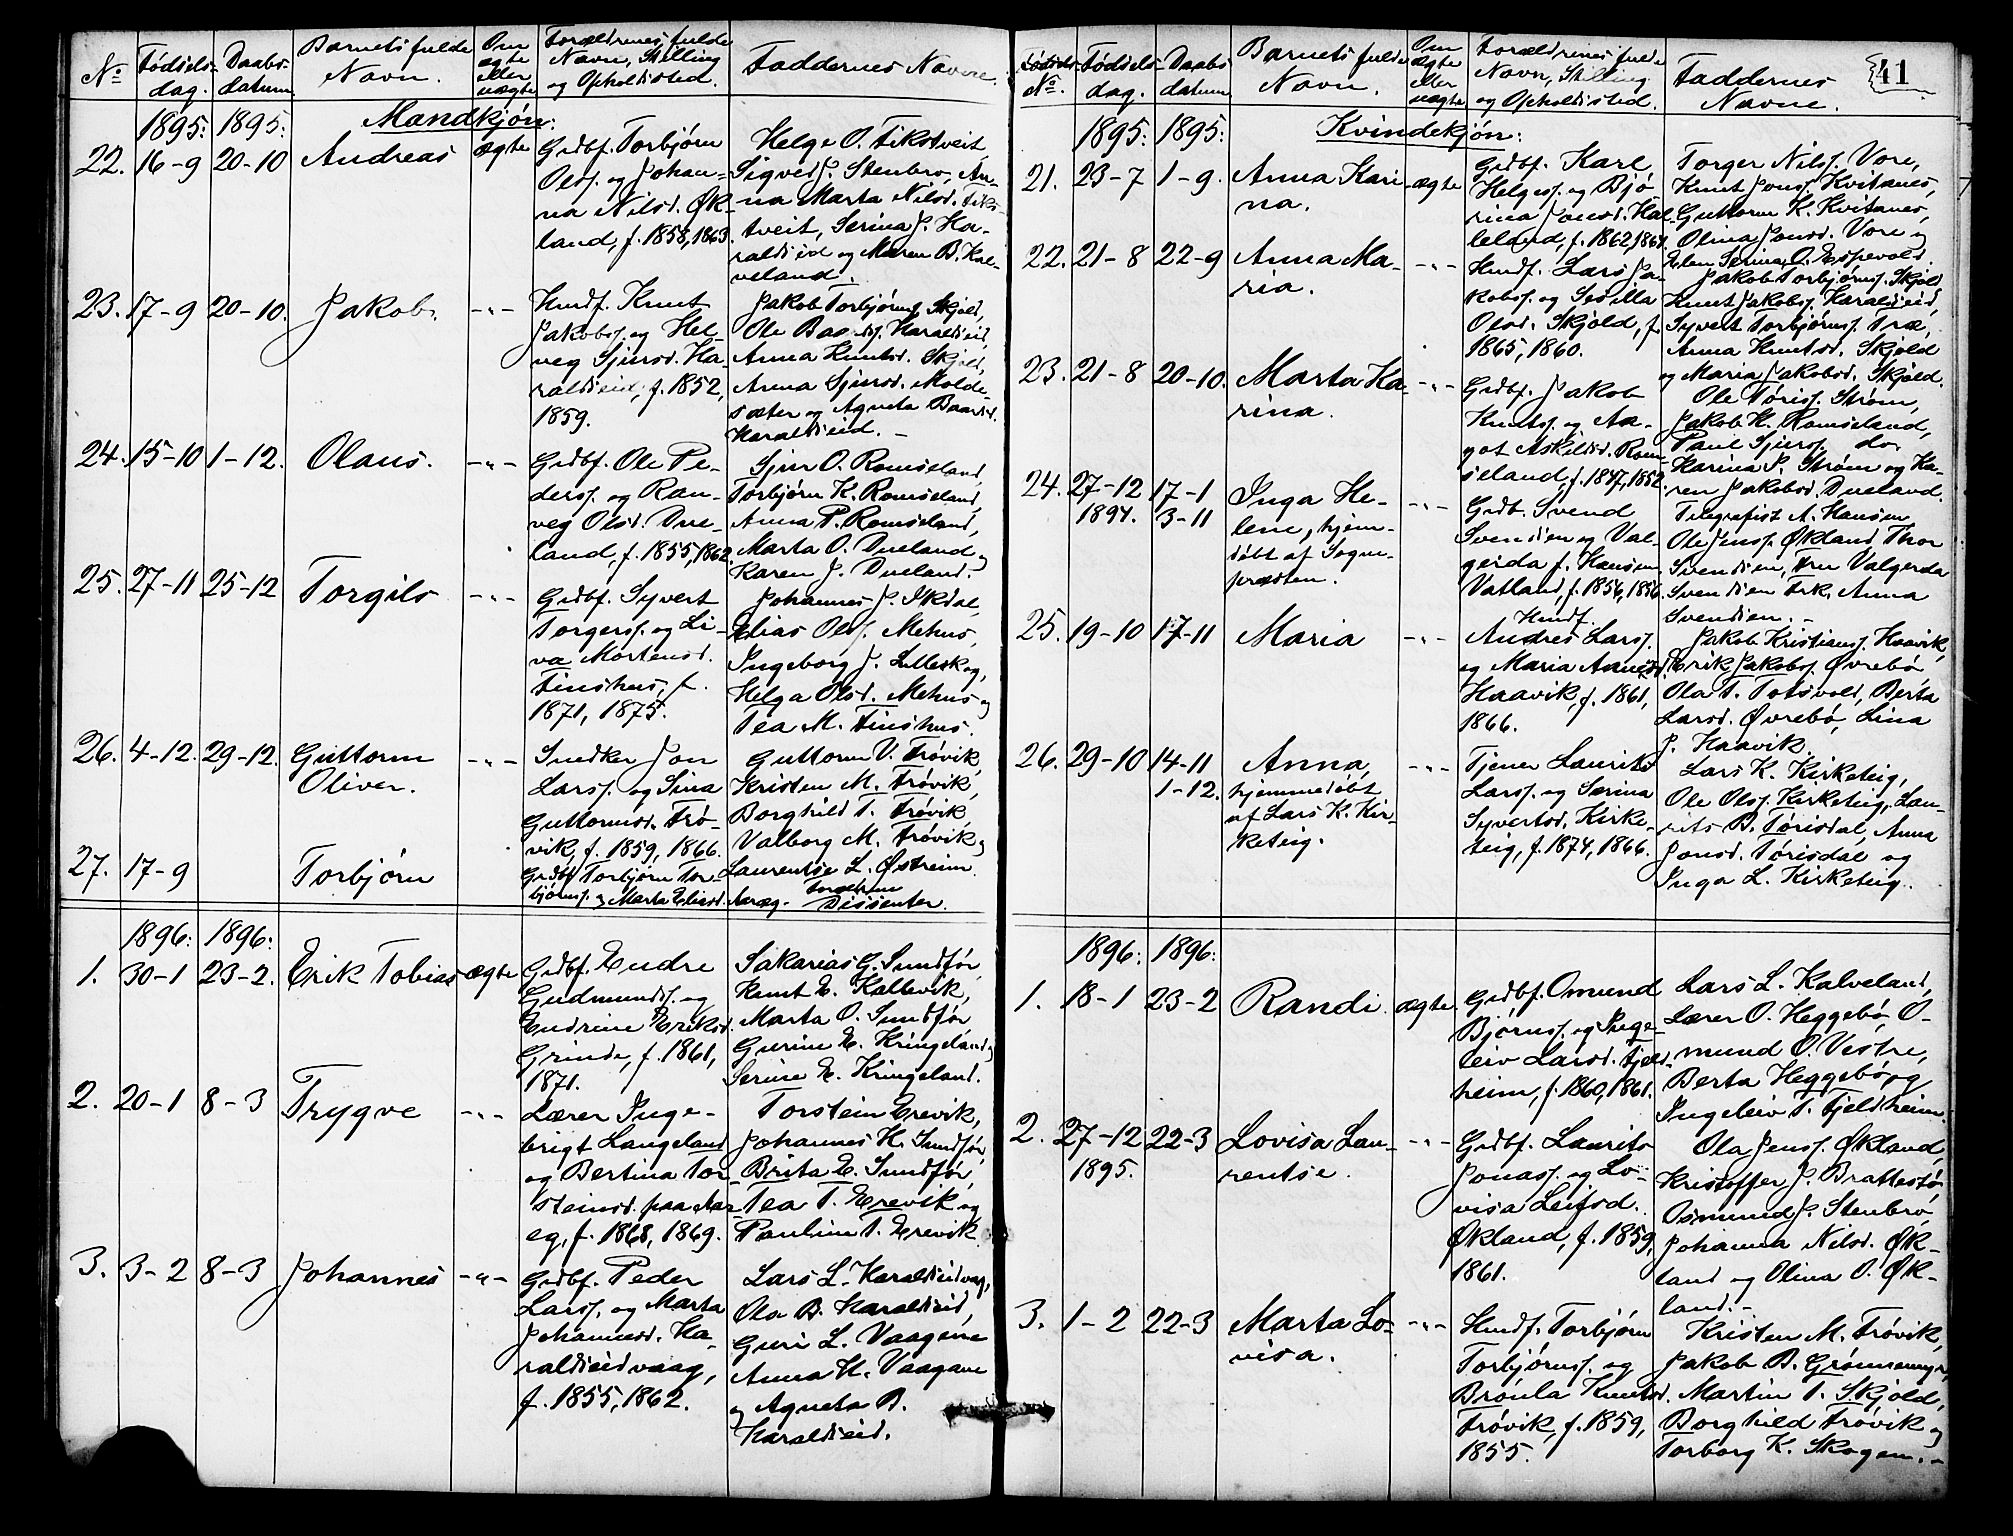 41
No Fødsels- Daabs- Barnets fulde Om Forældrenes fulde Faddernes Navne.
dag. datum Navn. ægte Navn, Stilling
eller og Opholdssted.
uægte
1895: 1895: Mandkjøn:
22. 16-9 20-10 Andreas ægte
Grdbf. Torbjørn
Olss. og Johan-
na Nilsd. Øk-
land, f. 1858, 1863.
Helge O. Fikstveit,
Sigved J. Stenbro, An-
na Marta Nilsd. Fiks-
tveit, Serina J. Ha-
raldseid og Maren B. Kal-
veland.
23. 17-9 20-10. Jakob. -"-
Husf. Knut
Jakobs. og Hel-
veg Sjursd. Ha-
raldseid, f. 1852,
1859.
Jakob Torbjørns. Skjold,
Ole Baards. Haraldseid,
Anna Knutsd. Skjold,
Anna Sjursd. Molde-
sæter og Agneta Baardsd.
Haraldseid. -
24. 15-10 1-12. Olaus. -"-
Grdbf. Ole Pe-
ders. og Ran-
veg Olsd. Due-
land, f. 1855, 1862.
Sjur O. Romseland,
Torbjørn K. Romseland,
Anna P. Romseland,
Marta O. Dueland og
Karen J. Dueland.
25. 27-11 25-12 Torgils -"-
Grdbf. Syvert
Torgerss. og Li-
va Mortensd.
Finshus, f.
1871, 1875.
Johannes J. Ilsdal,
Elias Ols. Mehus,
Ingeborg J. Lilleskog,
Helga Olsd. Mehus og
Tea M. Finshus.
26. 4-12. 29-12. Guttorm -"-
Oliver.
Snedker Jon
Larss. og Sina
Guttormsd. Frø-
vik, f. 1859, 1866.
Guttorm V. Frøvik,
Kristen M. Frøvik,
Borghild T. Frøvik,
Valborg M. Frøvik og
Laurentse L. Østreim.
27. 17-9 Torbjørn
Grdbf. Torbjørn Tor-
bjørns. og Marta Eliasd. Aaræg.
Forældrene
Dissenter.
1896: 1896:
1. 30-1 23-2. Erik Tobias ægte
Grdbf. Endre
Gudmunds. og
Endrine Eriksd.
Grinde, f. 1861,
1871.
Sakarias G. Sundfør,
Knut E. Kallevik,
Marta O. Sundfør
Gurine E. Kringeland og
Serine E. Kringeland.
2. 20-1 8-3 Trygve -"-
Lærer Inge-
brigt Langeland
og Bertina Tor-
steinsd. paa Aar-
eg, f. 1868, 1869.
Torstein Erevik,
Johannes K. Sundfør,
Brita E. Sundfør,
Tea T. Erevik og
Pauline T. Erevik.
3. 3-2 8-3 Johannes -"-
Grdbf. Peder
Larss. og Marta
Johannesd. Ha-
raldseidvaag,
f. 1855, 1862.
Lars L. Haraldseidvag,
Ola B. Haraldseid,
Guri L. Vaagene
Anna H. Vaagane
og Agneta B.
Haraldseid.
No. Fødsels- Daabs- Barnets fulde Om Forældrenes fulde Faddernes
dag. datum Navn. ægte Navn, Stilling Navne.
eller og Opholdssted.
uægte
1895: 1895: Kvindekjøn:
21. 23-7 1-9. Anna Kari- ægte
na.
Grdbf. Karl
Helgess. og Bjø-
rina Jonsd. Kal-
leland, f. 1862, 1864.
Torger Nils. Vore,
Knut Jons. Kvitanes,
Guttorm K. Kvitanes,
Olina Jonsd. Vore og
Elen Serina O. Espevold.
22. 21-8 22-9 Anna Ma- -"-
ria.
Husf. Lars Ja-
kobs. og Sesilia
Olsd. Skjold, f.
1865, 1860.
Jakob Torbjørns. Skjold
Knut Jakobs. Haraldseid,
Syvert Torbjørns. Træ,
Anna Knutsd. Skjold
og Maria Jakobsd. Skjold.
23. 21-8 20-10. Marta Ka- -"-
rina.
Grdbf. Jakob
Knuts. og Aa-
got Askildsd. Rom-
seland, f. 1847, 1852.
Ole Tøriss. Strøm,
Jakob K. Romseland,
Paul Sjurs. do.
Karina P. Strøm og Ka-
ren Jakobsd. Dueland.
24. 27-12 17-1 Inga He- -"-
1894. 3-11 lene, hjem-
døbt af Sogne-
præsten.
Grdb. Svend
Svendsen og Val-
gerda f. Hansen
Vatland, f. 1854, 1856.
Telegrafist A. Hansen
Ole Jenss. Økland, Thor
Svendsen, Fru Valgerda
Svendsen Frk. Anna
Svendsen. -
25. 19-10 17-11 Maria -"-
Husf.
Andres Larss.
og Maria Aanesd.
Haavik, f. 1861,
1866.
Jakob Kristians. Haavik,
Erik Jakobs. Øvrebø
Ola T. Totsvold, Berta
Larsd. Øvrebø, Lina
J. Haavik.
26. 29-10 14-11 Anna, -"-
1-12. hjemmedøbt
af Lars K. Kir-
keteig.
Tjener Laurits
Larss. og Serina
Syvertsd. Kirke-
teig, f. 1874, 1866.
Lars K. Kirketeig,
Ole Ols. Kirketeig, Lau-
rits B. Tørisdal, Anna
Jonsd. Tørisdal og
Inga L. Kirketeig.
1896: 1896:
1. 18-1 23-2 Randi. ægte
Grdbf. Omund
Bjørns. og Inge-
leiv Larsd. Fjeld-
heim, f. 1860, 1861.
Lars L. Kalveland,
Lærer O. Heggebø, O-
mund O. Vestre,
Berta Heggebø og
Ingeleiv T. Fjeldheim.
2. 27-12 22-3 Lovisa Lau- -"-
1895. rentse.
Grdbf. Laurits
Jonass. og Lo-
visa Leifsd.
Økland, f. 1859,
1861.
Ola Jenss. Økland,
Kristoffer J. Brattestø
Osmund J. Stenbrø,
Johanna Nilsd. Øk-
land og Olina O. Øk-
land. -
3. 1-2 22-3 Marta Lo- -"-
visa.
Husf. Torbjørn
Torbjørnss. og
Brønla Knutsd.
Frøvik, f. 1859,
1855.
Kristen M. Frøvik,
Jakob B. Grønnemyr,
Martin T. Skjold,
Borghild Frøvik og
Torborg K. Skogen. -